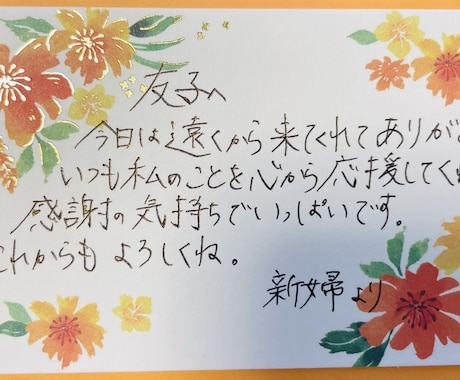 友子へ
今日は遠くから来てくれてありが
いつも私のことを心から応援してく
感謝の気持ちでいっぱいです。
これからもよろしくね。
新婦より